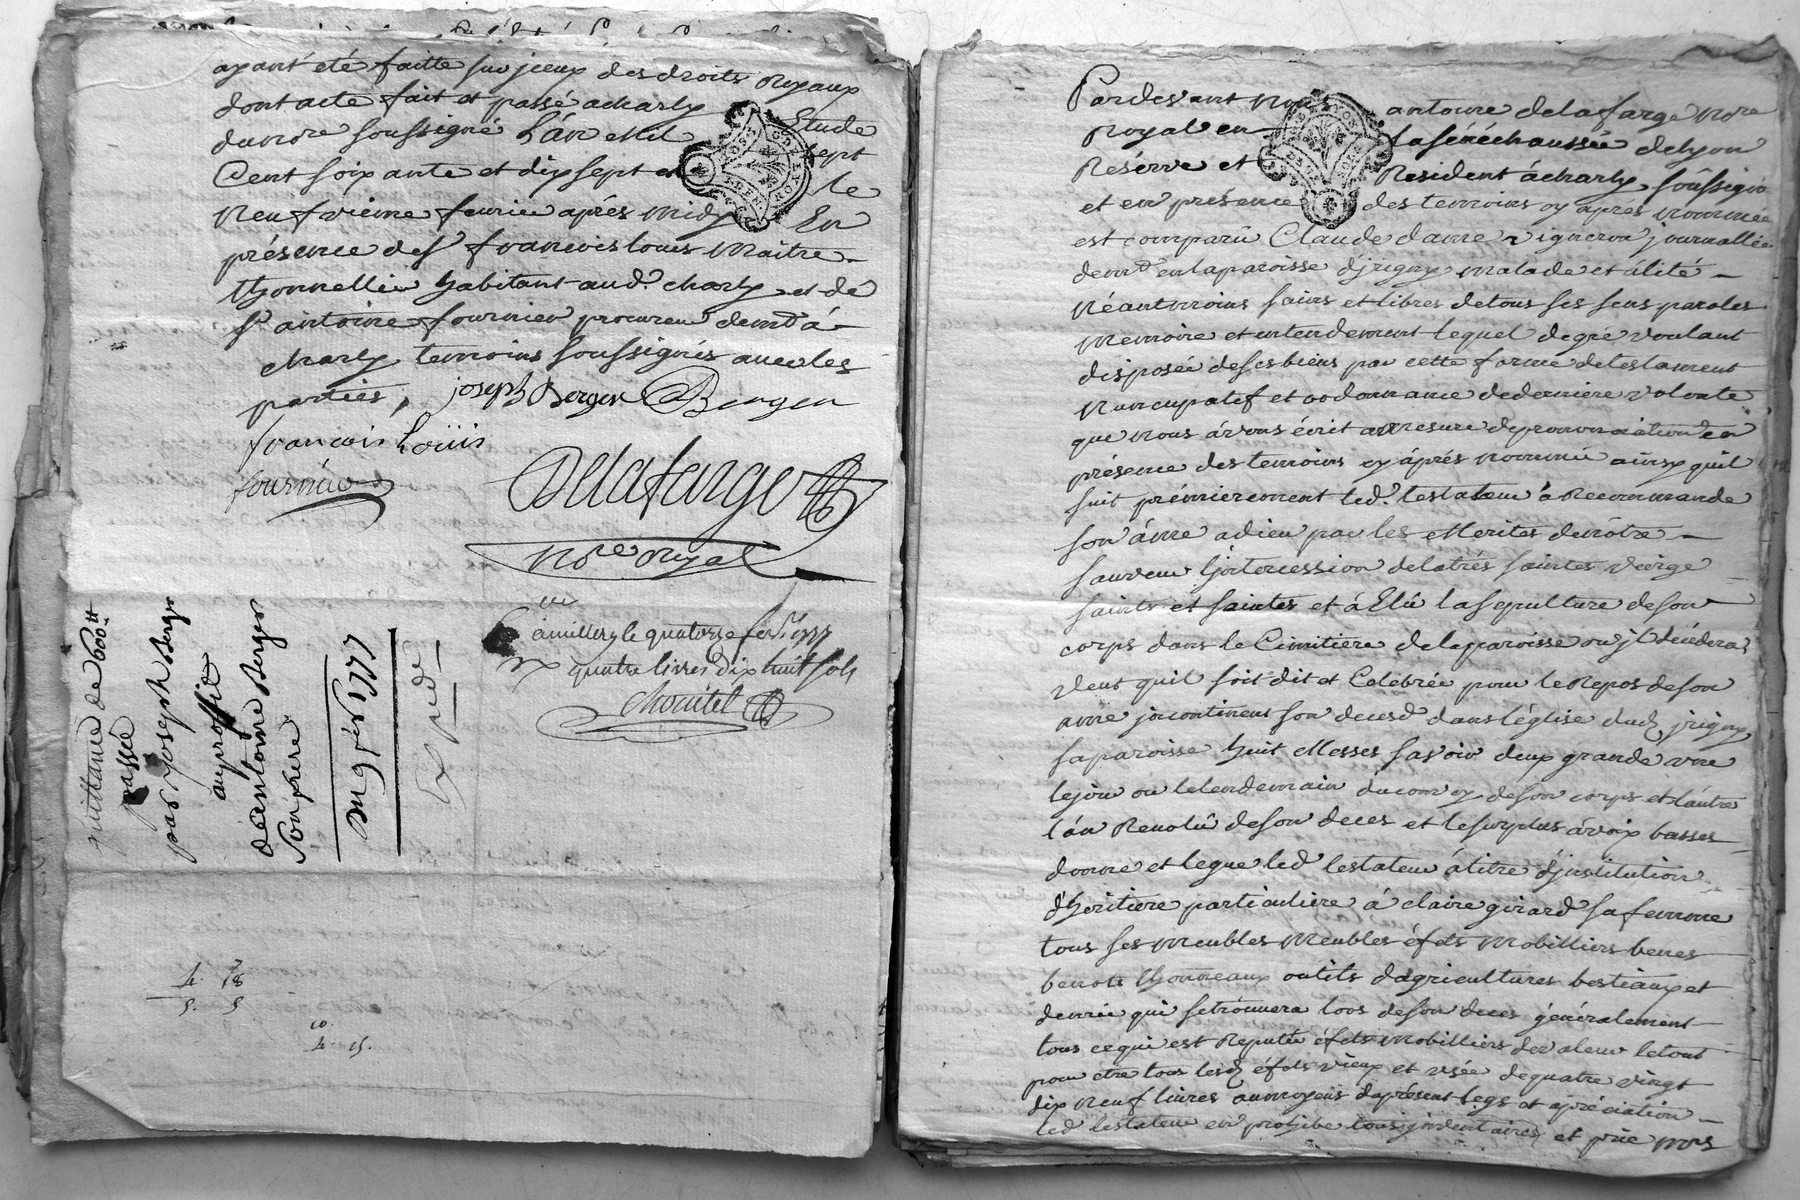 ayant été faitte sur jceux des droits Royaux
dont acte fait et passé a charly Etude
du no.re soussigné L'an Mil sept
Cent soixante et dix sept et le
Neufvieme feurier aprés midy En
présence de s.r francois louis Maitre
thonnellier habitant aud.t charly et de
s.r antoine fournier procureur dem.t á
charly temoins soussignés auec les
parties, joseph Berger ABerger
francois Loüis
fournier
Delafarge
No.re royal
a millery le quatorze fev. 1777
Rx quatre livres dix huit sols
quittance de 600 tt
passée
par joseph Berger
au proffit
d'antoine Berger
son frere
Du 9 fév 1777
Exped.
4. 18
5. 5
10
4. 15.
Pardevant Nous antoine delafarge No.re
Royal en la sénéchaussée de Lyon
Réserve et Résident á charly soussigné
et en présence des temoins cy aprés nommés
est comparü Claude dame vigneron journallier
dem.t en la paroisse d'jrigny malade et álité
Néantmoins sains et libres de tous ses sens paroles
memoire et entendement lequel de gré voulant
disposée de ses biens par cette forme de testament
Nuncupatif et ordonnance de derniere volonte
que nous ávons écrit a mesure de prononciation en
présence des temoins cy áprés nommé ainsy quil
suit prémierement led.t testateur á Recommandé
son âme a dieu par les Merites de nôtre
sauveur l'jntercession de la trés saintes vierge
saints et saintes et á Elû la sepulture de son
corps dans le Cimitiere de la paroisse ou jl décédera
veut quil soit dit et Celebrée pour le Repos de son
ame jncontinent son deces dans l'église dud. jrigny
sa paroisse huit Messes sasoir deux grande une
le jour ou le lendemain du convoy de son corps et l'autre
l'án Revolû de son deces et le surplus á voix basses
donne et legue led.t testateur á titre d'jnstitution
d'heritiere particuliere á claire girard sa femme
tous ses meubles meubles éfets Mobilliers benes
bennots thonneaux outils d'agricultures bestiaux et
denrée qui se trouvera lors de son deces généralement
tous ce qui est Réputée éfets Mobilliers de valeur le tout
pour etre tous lesd. éfets vieux et usée de quatre vingt
dix neuf livres au moyens du présent legs et apréciation
led.t testateur en prohibe tous jnventaires et prie Mrs